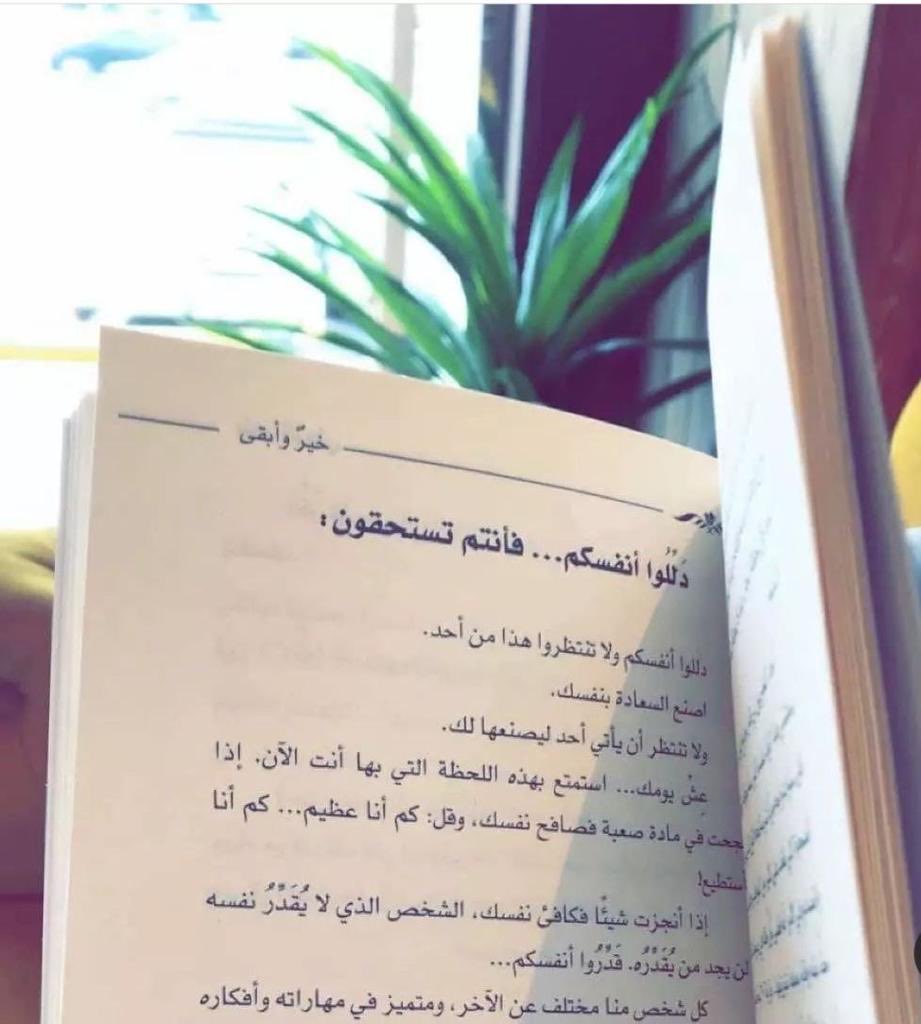 خيرٌ وأبقى
دَلِّلُوا أنفسكم... فأنتم تستحقون:
دللوا أنفسكم ولا تنتظروا هذا من أحد.
اصنع السعادة بنفسك.
ولا تنتظر أن يأتي أحد ليصنعها لك.
عِشْ يومك... استمتع بهذه اللحظة التي بها أنت الآن. إذا
نجحت في مادة صعبة فصافح نفسك، وقل: كم أنا عظيم... كم أنا
أستطيع!
إذا أنجزت شيئًا فكافئ نفسك، الشخص الذي لا يُقَدِّرُ نفسه
لن يجد من يُقَدِّرُه. قَدِّرُوا أنفسكم...
كل شخص منا مختلف عن الآخر، ومتميز في مهاراته وأفكاره